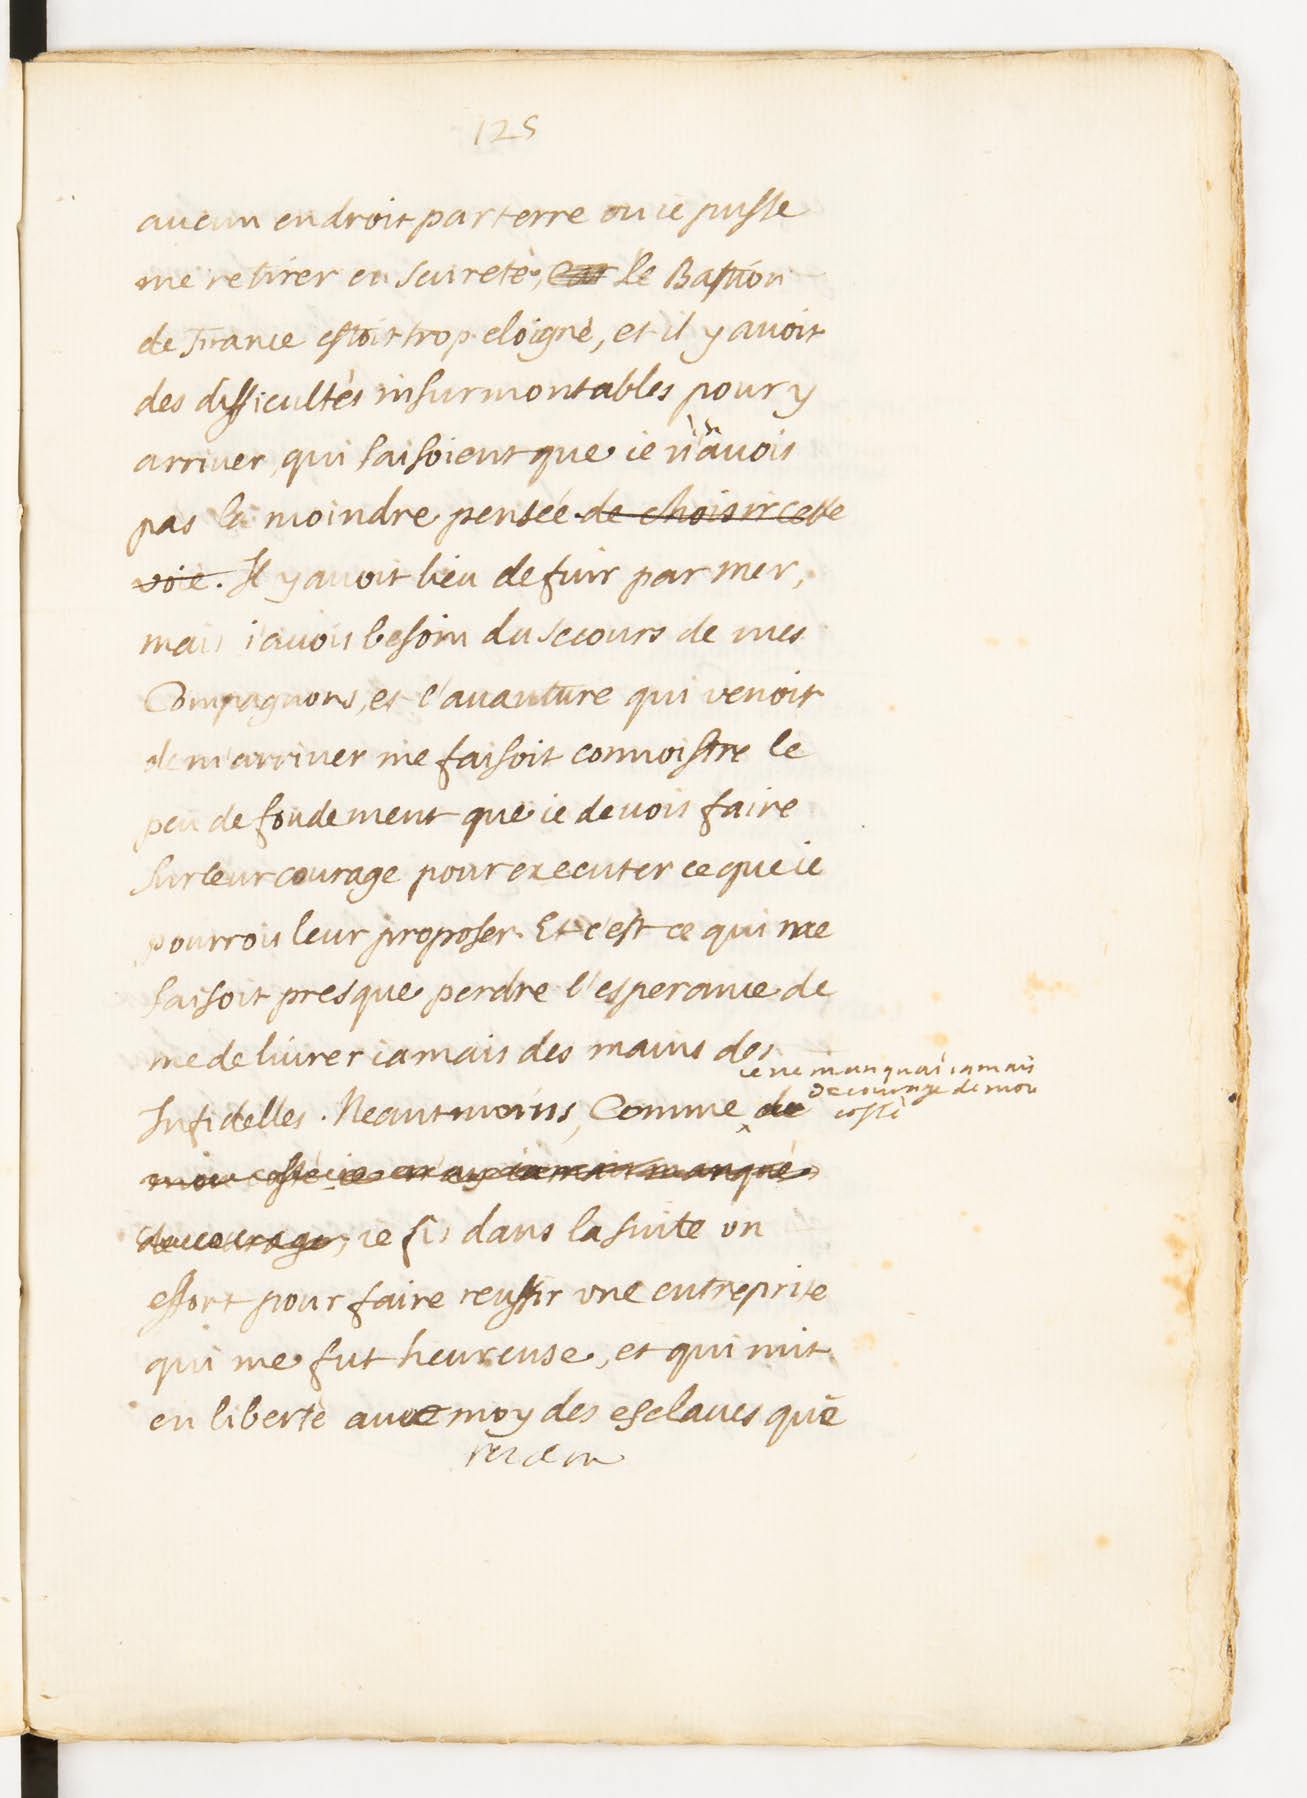 125
aucun endroit par terre ou ie pusse
me retirer en seureté, Car le Bastion
de France estoit trop eloigné, et il y avoit
des difficultés insurmontables pour y
arriver, qui faisoient que ie n'y avois
pas la moindre pensée de choisir cette
voie. Il y avoit lieu de fuir par mer,
mais i'avois besoin du secours de mes
Compagnons, et l'avanture qui venoit
de m'arriver me faisoit connoistre le
peu de fondement que ie devois faire
sur leur courage pour executer ce que ie
pourrois leur proposer. Et c'est ce qui me
faisoit presque perdre l'esperance de
me delivrer iamais des mains des
ie ne manquai iamais
de courage de mon
costé
Infidelles. Neantmoins, Comme de
mon costé ie n'ay iamais manqué
de courage, ie fis dans la suite vn
effort pour faire reussir vne entreprise
qui me fut heureuse, et qui mit
en liberté avec moy des esclaves que